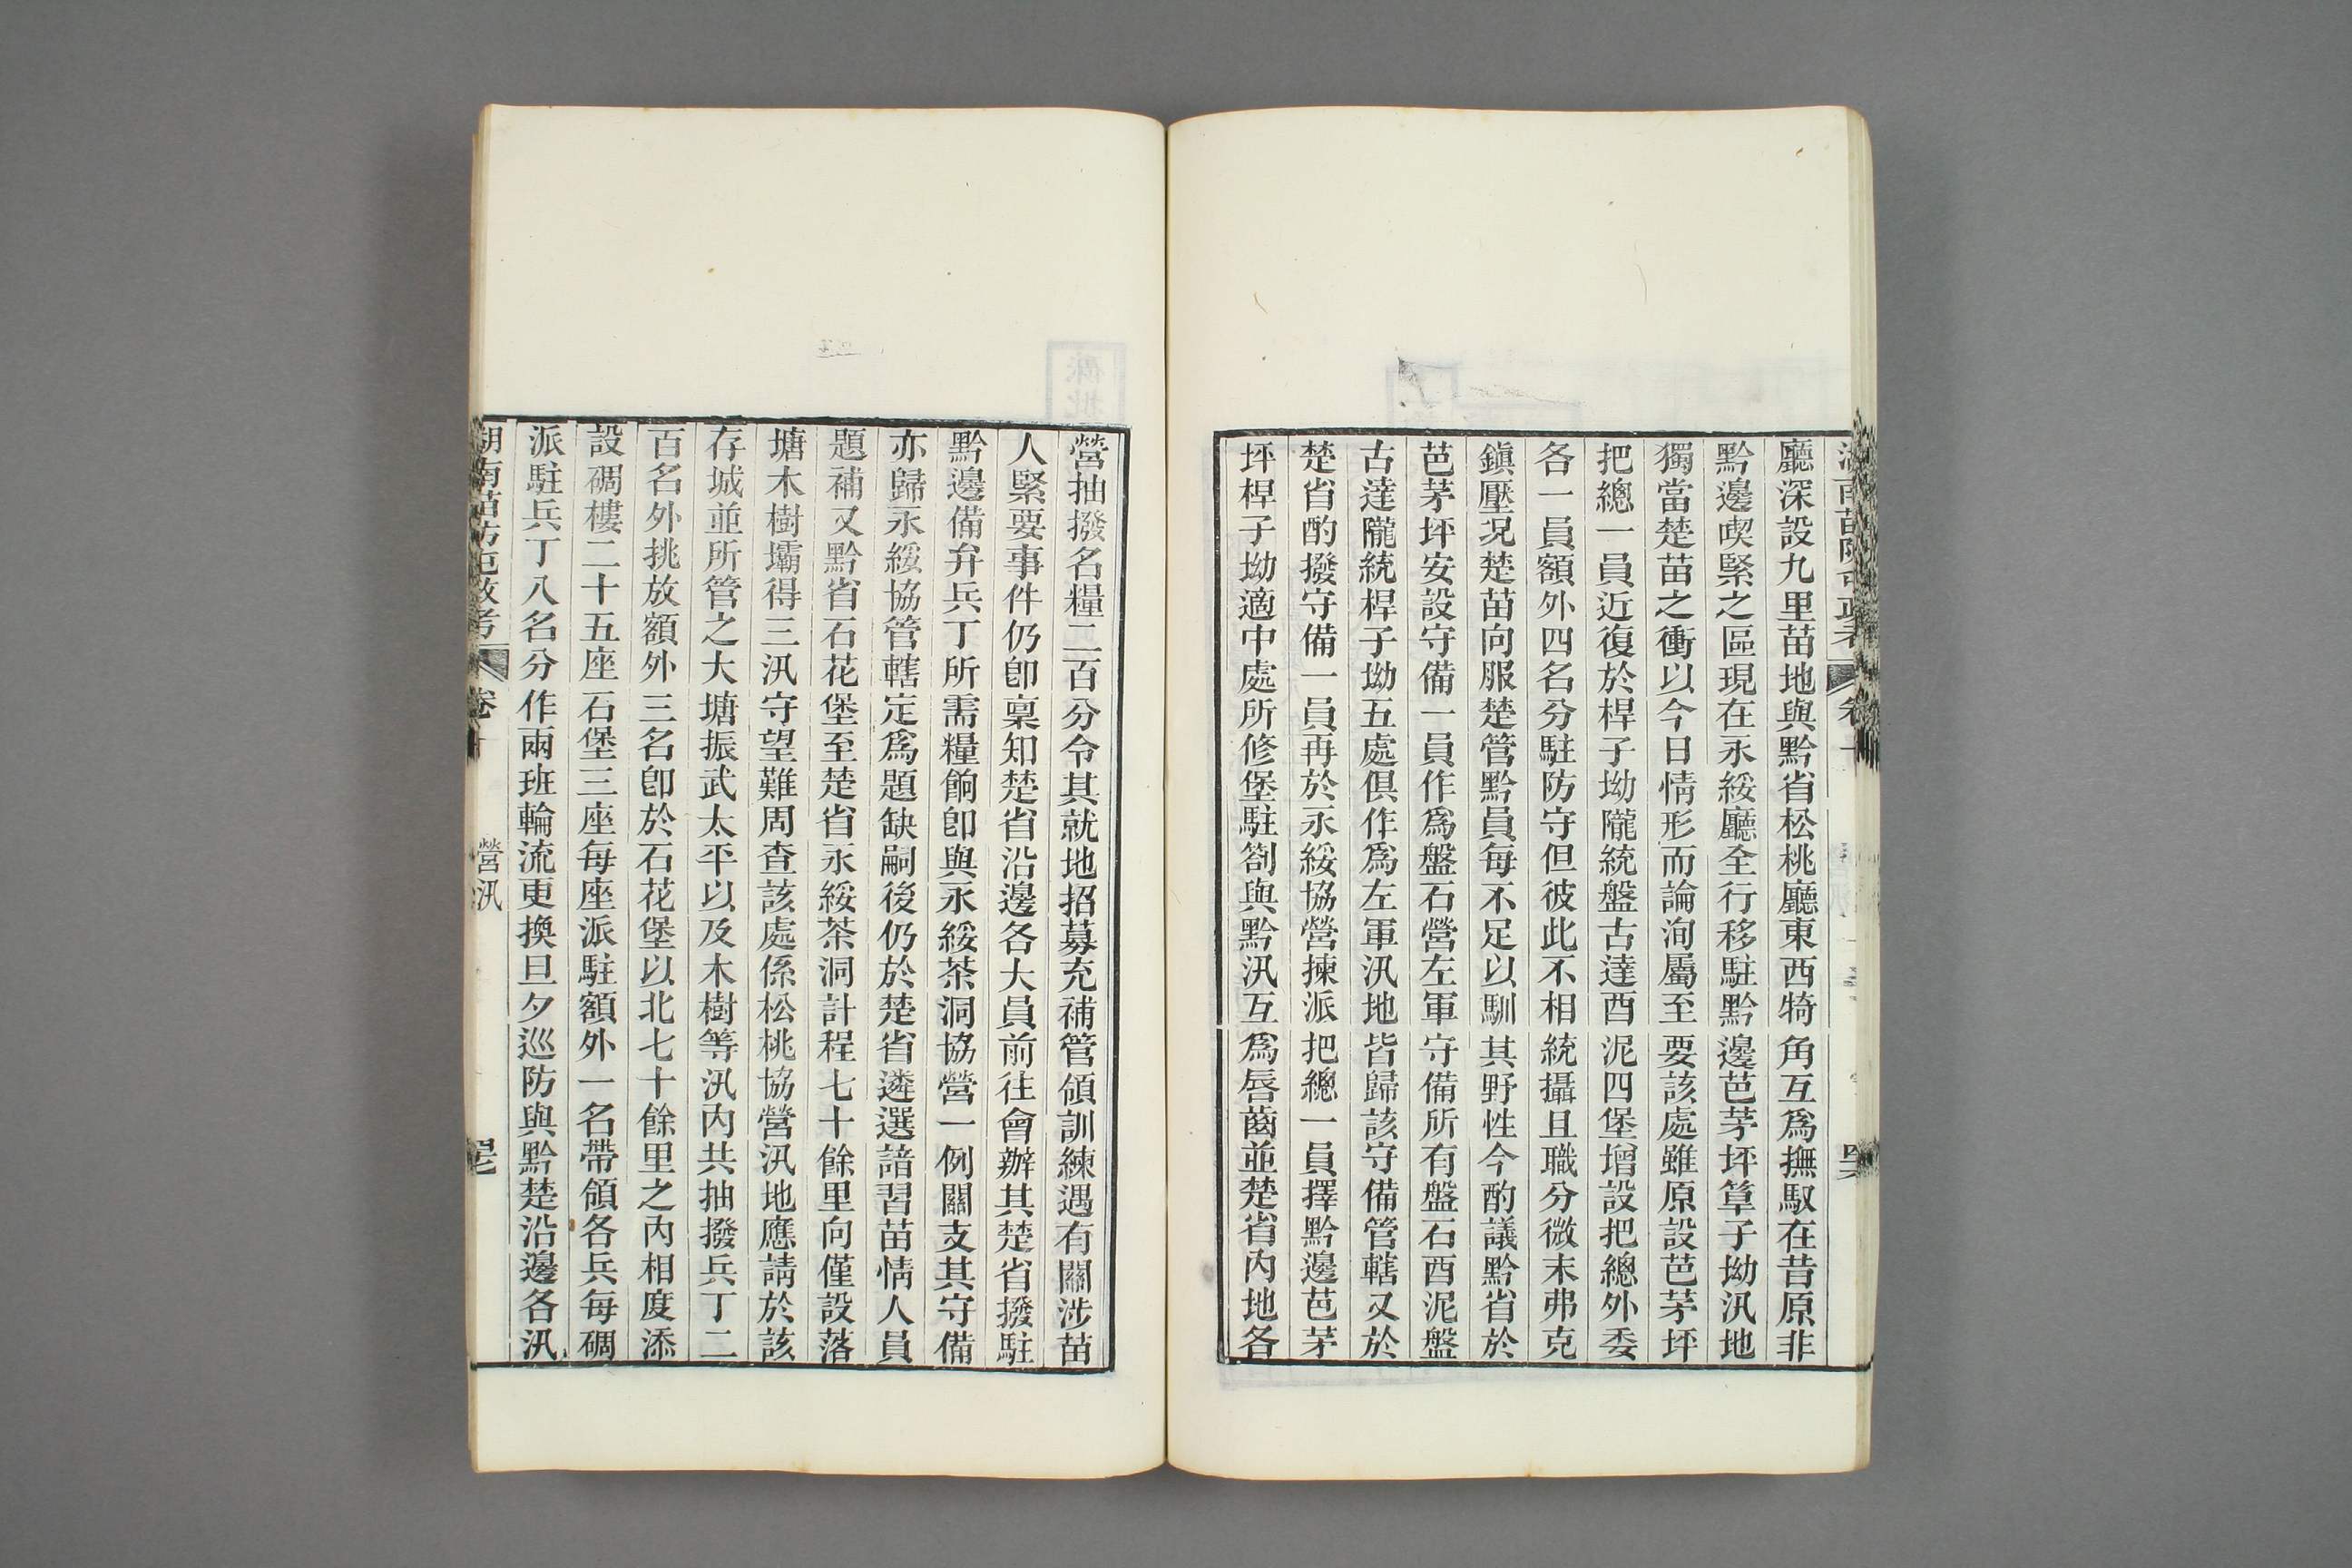 廳深設九里苗地與黔省松桃廳東西犄角互爲撫馭在昔原非
黔邊喫緊之區現在永綏廳全行移駐黔邊芭茅坪䈬子坳汛地
獨當楚苗之衝以今日情形而論洵屬至要該處雖原設芭茅坪
把總一員近復於桿子坳隴統盤古達酉泥四堡增設把總外委
各一員額外四名分駐防守但彼此不相統攝且職分微末弗克
鎭壓况楚苗向服楚管黔員每不足以馴其野性今酌議黔省於
芭茅坪安設守備一員作爲盤石營左軍守備所有盤石酉泥盤
古達隴統桿子坳五處俱作爲左軍汛地皆歸該守備管轄又於
楚省酌撥守備一員再於永綏協營揀派把總一員擇黔邊芭茅
坪桿子坳適中處所修堡駐劄與黔汛互爲唇齒並楚省內地各
營抽撥名糧二百分令其就地招募充補管領訓練遇有關涉苗
人緊要事件仍卽稟知楚省沿邊各大員前往會辦其楚省撥駐
黔邊備弁兵丁所需糧餉卽與永綏茶洞協營一例關支其守備
亦歸永綏協管轄定爲題缺嗣後仍於楚省遴選諳習苗情人員
題補又黔省石花堡至楚省永綏茶洞計程七十餘里向僅設落
塘木樹壩得三汛守望難周查該處係松桃協營汛地應請於該
存城並所管之大塘振武太平以及木樹等汛內共抽撥兵丁二
百名外挑放額外三名卽於石花堡以北七十餘里之內相度添
設碉樓二十五座石堡三座每座派駐額外一名帶領各兵每碉
派駐兵丁八名分作兩班輪流更換旦夕巡防與黔楚沿邊各汛
湖南苗防屯政考
卷十
營汛